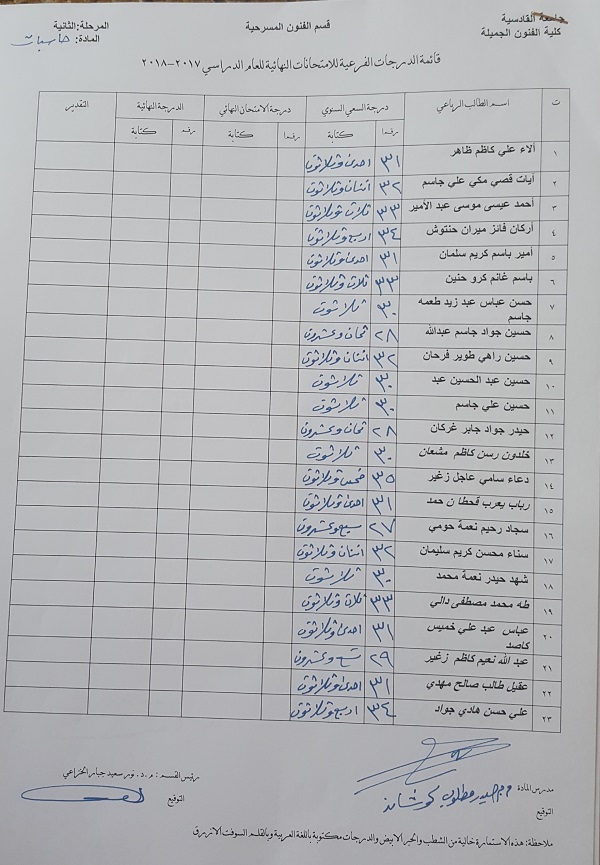 جامعة القادسية
كلية الفنون الجميلة
قسم الفنون المسرحية
المرحلة:الثانية
المادة: حاسبات
قائمة الدرجات الفرعية للامتحانات النهائية للعام الدراسي ٢٠١٧-٢٠١٨
ت اسم الطالب الرباعي درجة السعي السنوي درجة الامتحان النهائي الدرجة النهائية التقدير
رقما كتابة رقما كتابة رقم كتابة
١ آلاء علي كاظم ظاهر ٣١ احدى وثلاثون
٢ آيات قصي مكي علي جاسم ٣٢ اثنان وثلاثون
٣ أحمد عيسى موسى عبد الأمير ٣٣ ثلاث وثلاثون
٤ أركان فائز ميران حنتوش ٣٤ اربع وثلاثون
٥ أمير باسم كريم سلمان ٣١ احدى وثلاثون
٦ باسم غانم كرو حنين ٣٣ ثلاث وثلاثون
٧ حسن عباس عبد زيد طعمه جاسم ٣٠ ثلاثون
٨ حسين جواد جاسم عبدالله ٢٨ ثمان وعشرون
٩ حسين راهي طوير فرحان ٣٢ اثنان وثلاثون
١٠ حسين عبد الحسين عبد ٣٠ ثلاثون
١١ حسين علي جاسم ٣٠ ثلاثون
١٢ حيدر جواد جابر غركان ٢٨ ثمان وعشرون
١٣ خلدون رسن كاظم مشعان ٣٠ ثلاثون
١٤ دعاء سامي عاجل زغير ٣٥ خمس وثلاثون
١٥ رباب يعرب قحطان حمد ٣١ احدى وثلاثون
١٦ سجاد رحيم نعمة حومي ٢٧ سبع وعشرون
١٧ سناء محسن كريم سليمان ٣٢ اثنان وثلاثون
١٨ شهد حيدر نعمة محمد ٣٠ ثلاثون
١٩ طه محمد مصطفى دالي ٣٣ ثلاث وثلاثون
٢٠ عباس عبد علي خميس كاصد ٣١ احدى وثلاثون
٢١ عبد الله نعيم كاظم زغير ٢٩ تسع وعشرون
٢٢ عقيل طالب صالح مهدي ٣١ احدى وثلاثون
٢٣ علي حسن هادي جواد ٣٤ اربع وثلاثون
مدرس المادة م.م حيدر
التوقيع
رئيس القسم : م.د. نور سعيد جبار الخزاعي
التوقيع
ملاحظة: هذه الاستمارة خالية من الشطب والحبر الابيض والدرجات مكتوبة باللغة العربية وبالقلم السوفت الازرق